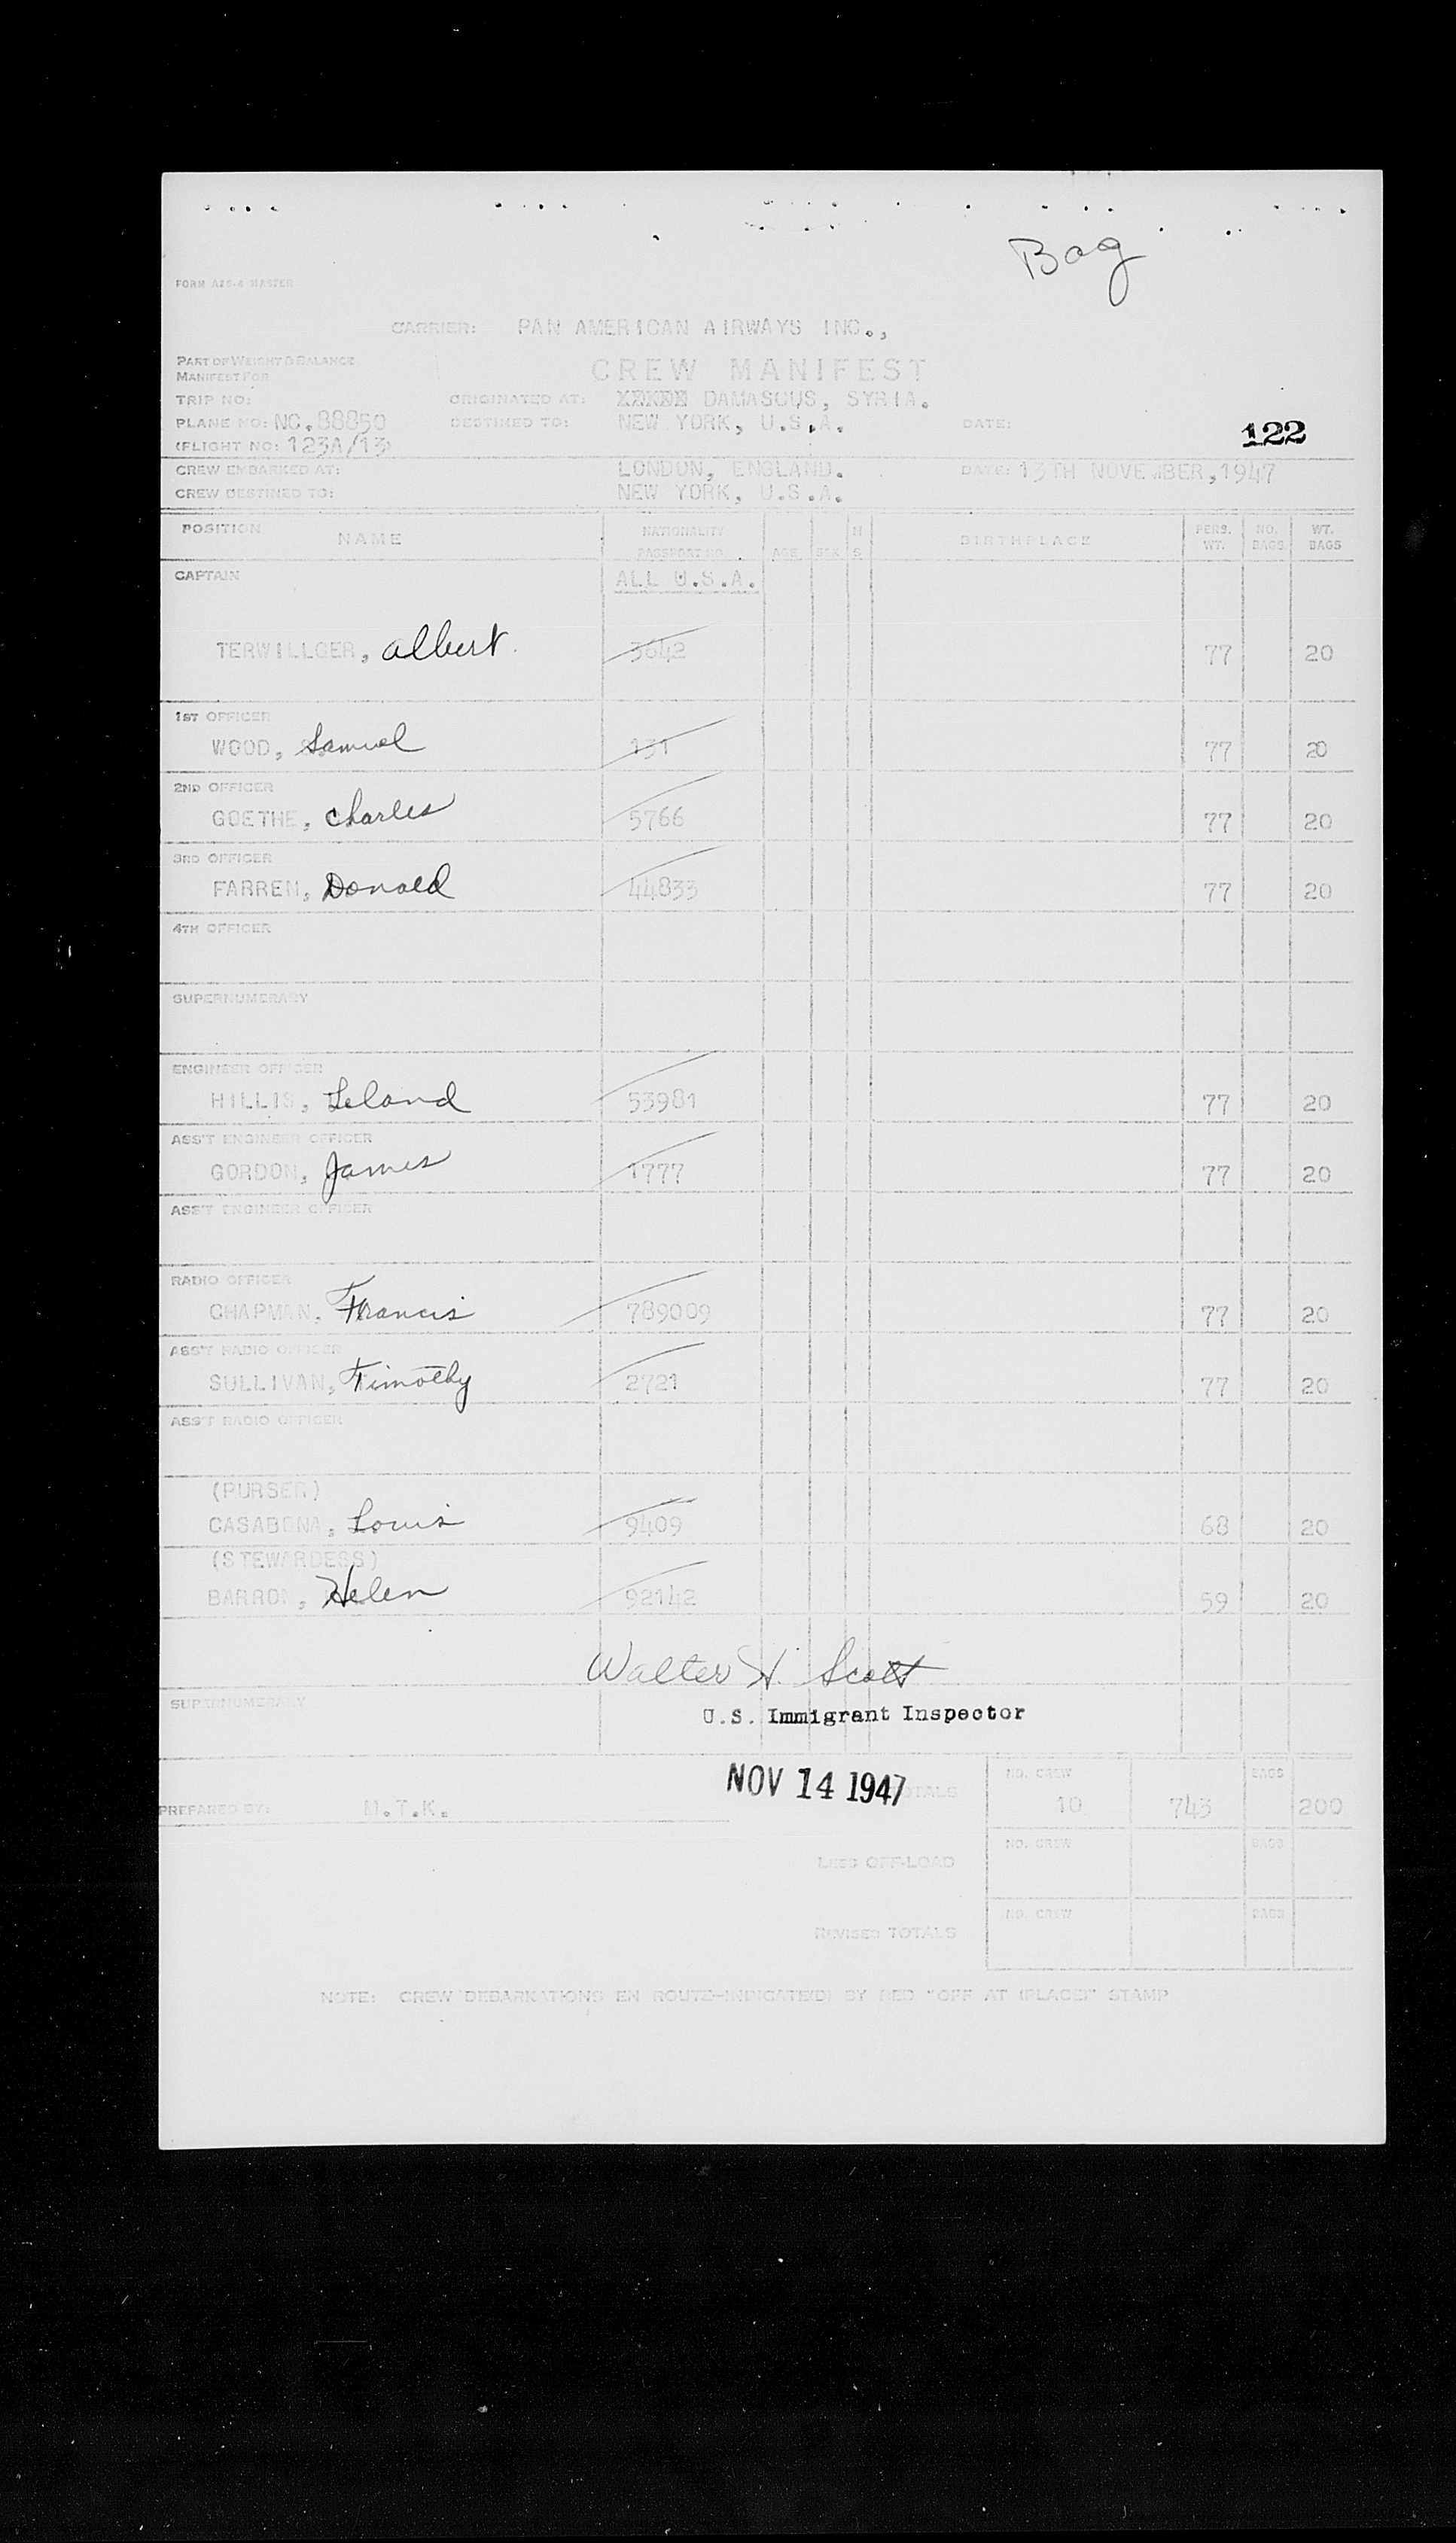 Bag
CARRIER: PAN AMERICAN AIRWAYS INC.,
PART OF WEIGHT & BALANCE
MANIFEST FOR
CREW MANIFEST
TRIP NO: ORIGINATED AT: DAMASCUS, SYRIA.
PLANE NO: NC.88850 DESTINED TO: NEW YORK, U.S.A. DATE: 122
(FLIGHT NO: 123A/13)
CREW EMBARKED AT: LONDON, ENGLAND. DATE: 13TH NOVEMBER, 1947
CREW DESTINED TO: NEW YORK, U.S.A.
POSITION NAME NATIONALITY PASSPORT NO. AGE SEX M S BIRTHPLACE PERS. WT. NO. BAGS WT. BAGS
CAPTAIN ALL U.S.A.
TERWILLGER, Albert 3642 77 20
1ST OFFICER
WOOD, Samuel 131 77 20
2ND OFFICER
GOETHE, Charles 5766 77 20
3RD OFFICER
FARREN, Donald 44833 77 20
4TH OFFICER
SUPERNUMERARY
ENGINEER OFFICER
HILLIS, Leland 53981 77 20
ASS'T ENGINEER OFFICER
GORDON, James 1777 77 20
ASS'T ENGINEER OFFICER
RADIO OFFICER
CHAPMAN, Francis 789009 77 20
ASS'T RADIO OFFICER
SULLIVAN, Timothy 2721 77 20
ASS'T RADIO OFFICER
(PURSER)
CASABONA, Louis 9409 68 20
(STEWARDESS)
BARRON, Helen 92142 59 20
Walter H. Scott
SUPERNUMERARY
U.S. Immigrant Inspector
NOV 14 1947
TOTALS NO. CREW 10 743 BAGS 200
PREPARED BY: M.T.K.
LESS OFF-LOAD NO. CREW BAGS
REVISED TOTALS NO. CREW BAGS
NOTE: CREW DEBARKATIONS EN ROUTE-INDICATE(D) BY RED "OFF AT (PLACE)" STAMP